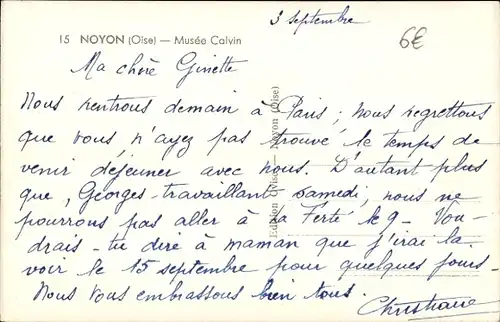 3 septembre
6€
15 NOYON (Oise) — Musée Calvin
Ma chère Ginette
Nous rentrons demain à Paris ; nous regrettons
que vous n'ayez pas trouvé le temps de
venir déjeuner avec nous. D'autant plus
que, Georges travaillant samedi, nous ne
pourrons pas aller à La Ferté le 9 - Vou-
drais-tu dire à maman que j'irai la
voir le 15 septembre pour quelques jours-
Nous vous embrassons bien tous.
Christiane
Edition — Noyon (Oise)